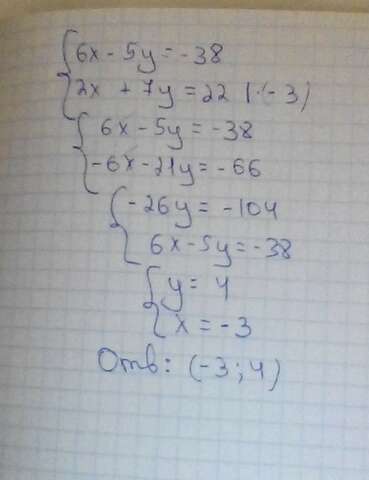 6x - 5y = -38
2x + 7y = 22 | · (-3)
6x - 5y = -38
-6x - 21y = -66
-26y = -104
6x - 5y = -38
y = 4
x = -3
Отв: (-3; 4)